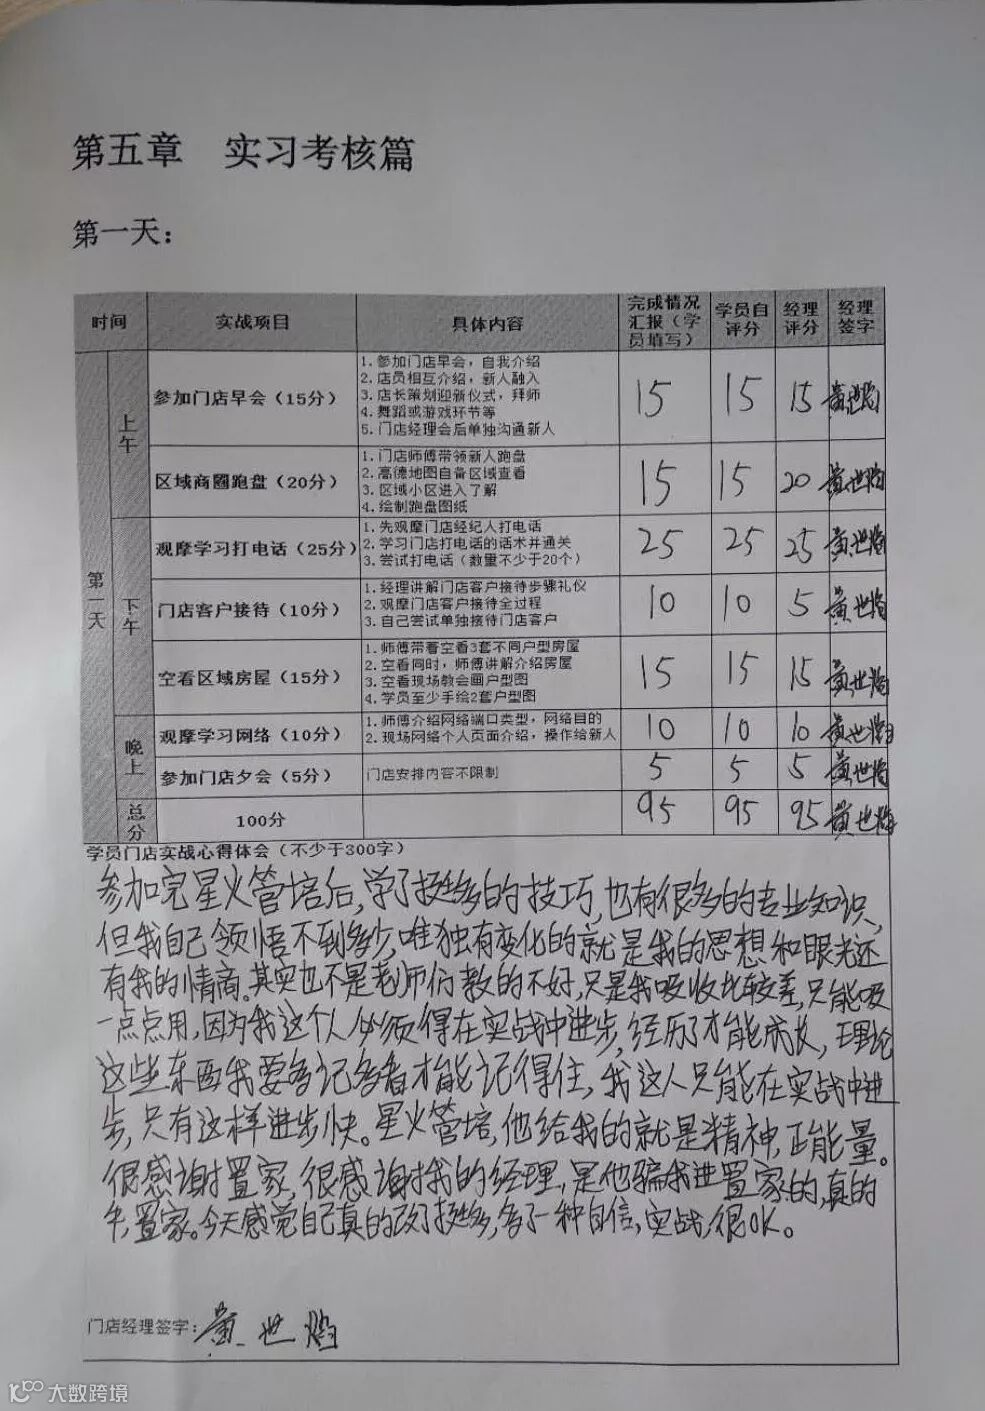 第五章 实习考核篇
第一天：
时间 实战项目 具体内容 完成情况汇报（学员填写） 学员自评分 经理评分 经理签字
第一天
上午
参加门店早会（15分）
1. 参加门店早会，自我介绍
2. 店员相互介绍，新人融入
3. 店长策划迎新仪式，拜师
4. 舞蹈或游戏环节等
5. 门店经理会后单独沟通新人
15 15 15 黄世
区域商圈跑盘（20分）
1. 门店师傅带领新人跑盘
2. 高德地图自备区域查看
3. 区域小区进入了解
4. 绘制跑盘图纸
15 15 20 黄世
下午
观摩学习打电话（25分）
1. 先观摩门店经纪人打电话
2. 学习门店打电话的话术并通关
3. 尝试打电话（数量不少于20个）
25 25 25 黄世
门店客户接待（10分）
1. 经理讲解门店客户接待步骤礼仪
2. 观摩门店客户接待全过程
3. 自己尝试单独接待门店客户
10 10 5 黄世
空看区域房屋（15分）
1. 师傅带着空看3套不同户型房屋
2. 空看同时，师傅讲解介绍房屋
3. 空看现场教会画户型图
4. 学员至少手绘2套户型图
15 15 15 黄世
晚上
观摩学习网络（10分）
1. 师傅介绍网络端口类型，网络目的
2. 现场网络个人页面介绍，操作给新人
10 10 10 黄世
参加门店夕会（5分）
门店安排内容不限制
5 5 5 黄世
总分 100分 95 95 95 黄世
学员门店实战心得体会（不少于300字）
参加完星火管培后，学了挺多的技巧，也有很多的专业知识，
但我自己领悟不到多少，唯独有变化的就是我的思想和眼光还
有我的情商。其实也不是老师们教的不好，只是我吸收比较差，只能吸
一点点用，因为我这个人必须得在实战中进步，经历了才能成长，理论
这些东西我要多记多看才能记得住，我这人只能在实战中进
步，只有这样进步快。星火管培，他给我的就是精神，正能量。
很感谢置家，很感谢我的经理，是他骗我进置家的，真的
牛，置家。今天感觉自己真的改了挺多，多了一种自信，实战，很OK。
门店经理签字：黄世
大数跨境